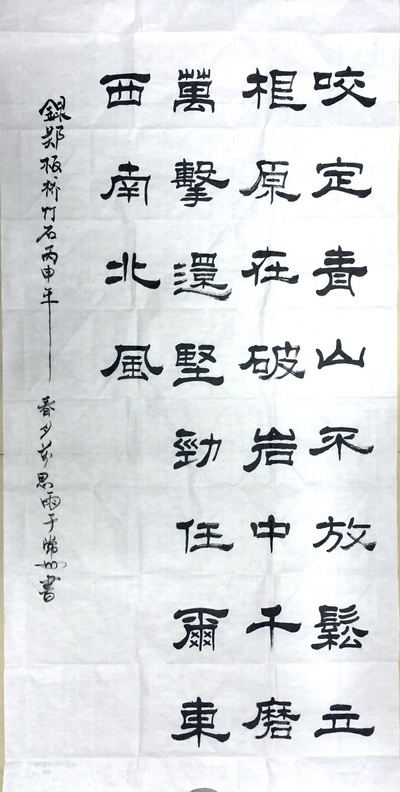 咬定青山不放鬆立
根原在破岩中千磨
萬擊還堅勁任爾東
西南北風
錄鄭板桥竹石丙申年春月思雨于書